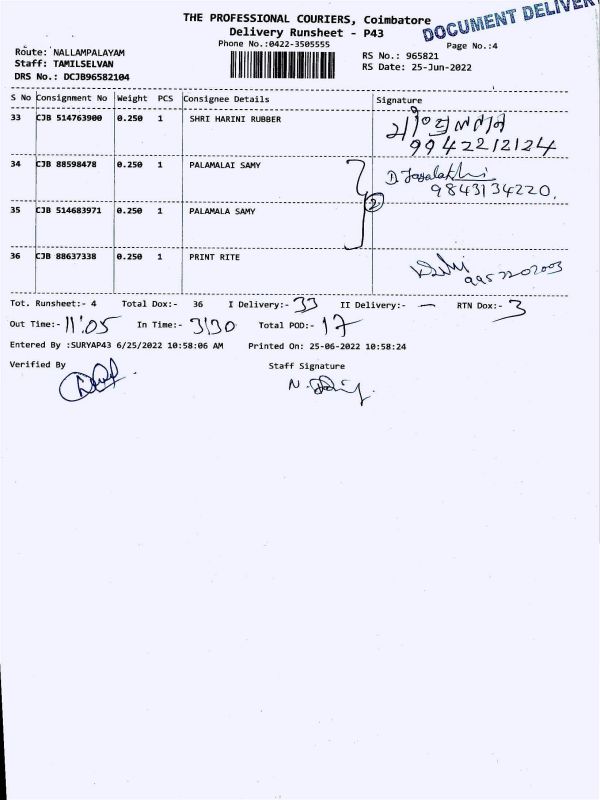 THE PROFESSIONAL COURIERS, Coimbatore
DOCUMENT DELIVER
Delivery Runsheet - P43
Phone No.:0422-3505555
Page No.:4
Route: NALLAMPALAYAM
RS No.: 965821
Staff: TAMILSELVAN
RS Date: 25-Jun-2022
DRS No.: DCJB96582104
S No Consignment No Weight PCS Consignee Details Signature
33 CJB 514763900 0.250 1 SHRI HARINI RUBBER
9942212124
34 CJB 88598478 0.250 1 PALAMALAI SAMY
9843134220.
2
35 CJB 514683971 0.250 1 PALAMALA SAMY
36 CJB 88637338 0.250 1 PRINT RITE
Tot. Runsheet:- 4 Total Dox:- 36 I Delivery:- 33 II Delivery:- — RTN Dox:- 3
Out Time:- 11'05 In Time:- 3'30 Total POD:- 17
Entered By :SURYAP43 6/25/2022 10:58:06 AM Printed On: 25-06-2022 10:58:24
Verified By Staff Signature